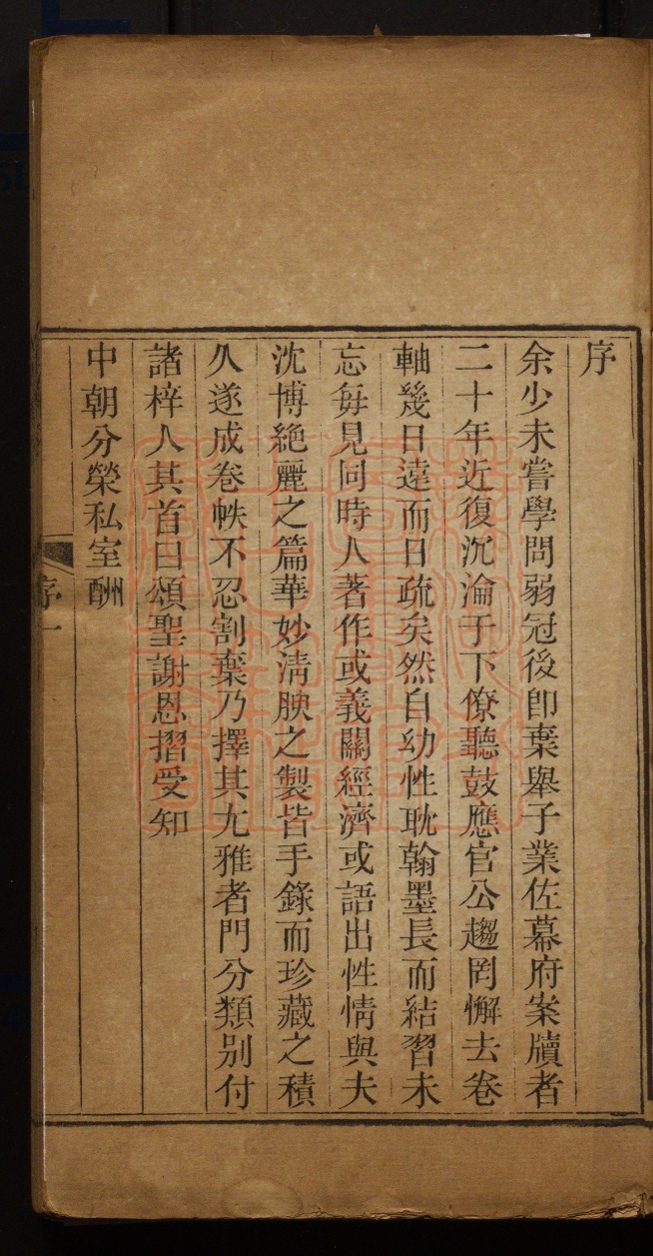 序
余少未嘗學問弱冠後卽棄舉子業佐幕府案牘者
二十年近復沉淪于下僚聽鼓應官公趨罔懈去卷
軸幾日遠而日疏矣然自幼性耽翰墨長而結習未
忘每見同時人著作或義關經濟或語出性情與夫
沈博絕麗之篇華妙淸腴之製皆手錄而珍藏之積
久遂成卷帙不忍割棄乃擇其尤雅者門分類別付
諸梓人其首曰頌聖謝恩摺受知
中朝分榮私室酬
序一